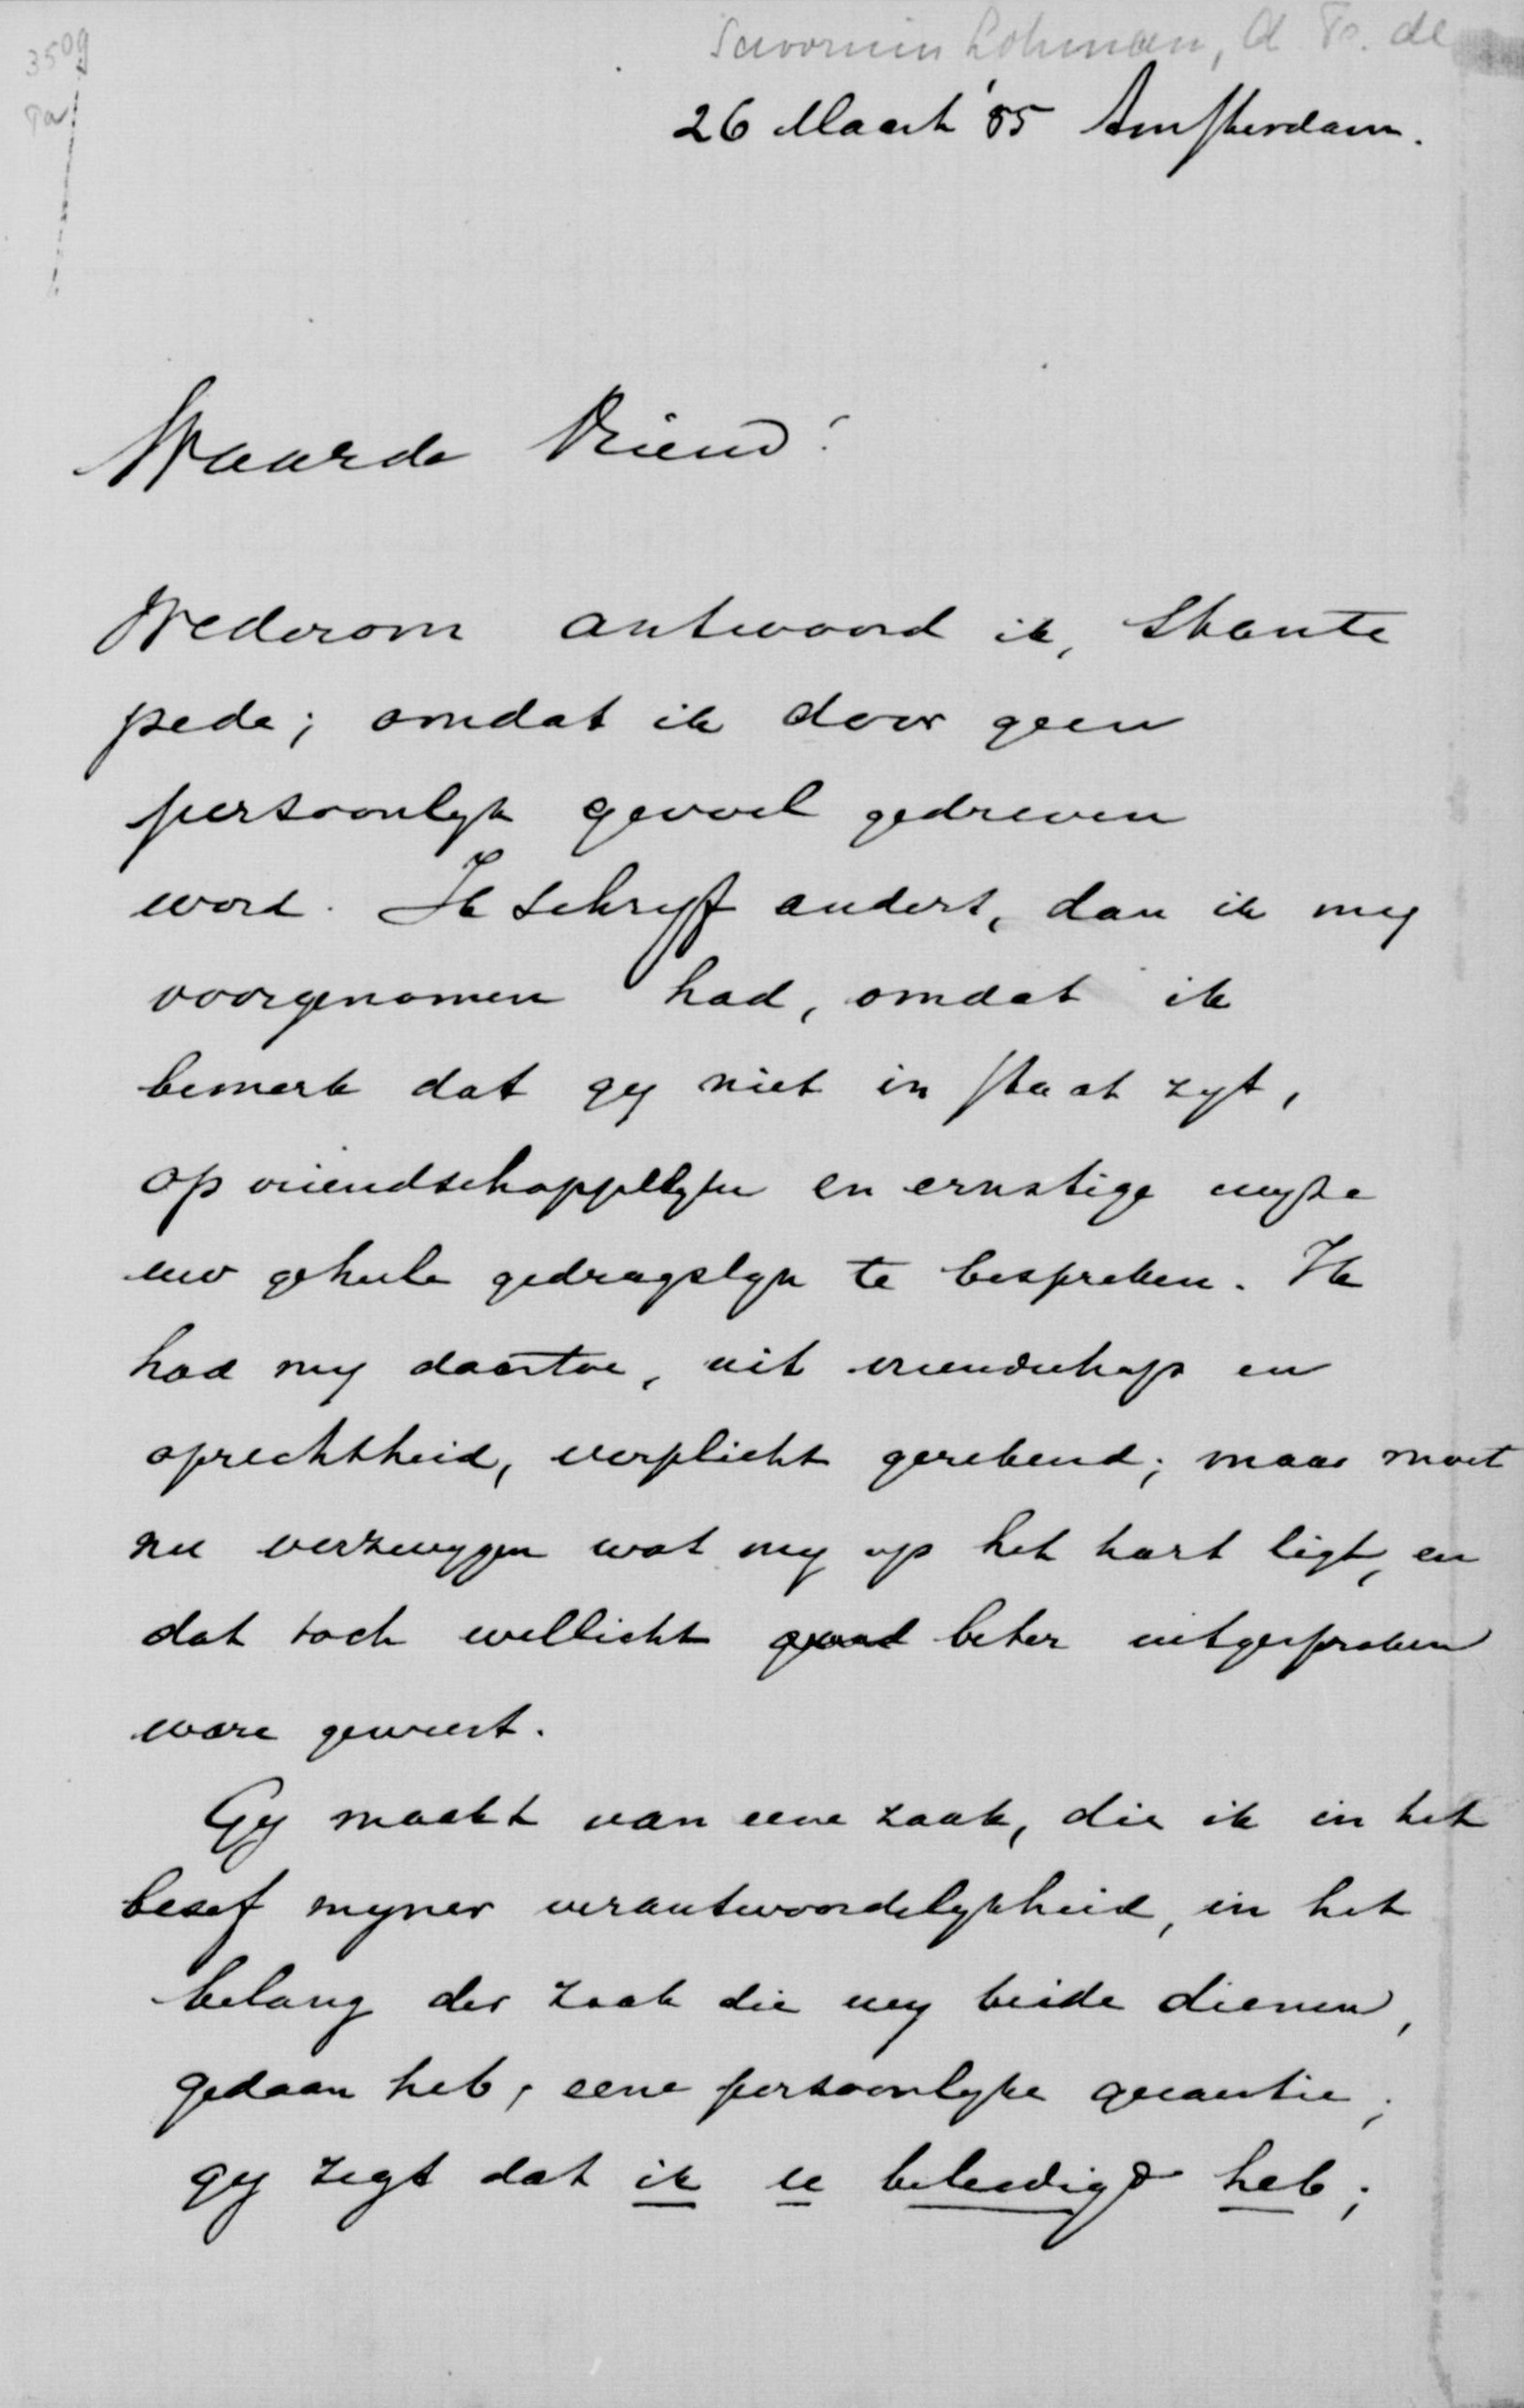 3509
Savornin Lohman, A. F. de
26 Maart '85 Amsterdam.
Waarde Vriend!
Wederom antwoord ik, stante
pede; omdat ik door geen
persoonlyk gevoel gedreven
word. Ik schryf anders, dan ik my
voorgenomen had, omdat ik
bemerk dat gy niet in staat zyt,
op vriendschappelyke en ernstige wyze
uw geheele gedragslyn te bespreken. Ik
had my daartoe, uit vriendschap en
oprechtheid, verplicht gerekend; maar moet
nu verzwygen wat my op het hart ligt, en
dat toch wellicht goed beter uitgesproken
ware geweest.
Gy maakt van eene zaak, die ik in het
besef myner verantwoordelykheid, in het
belang der zaak die wy beide dienen,
gedaan heb, eene persoonlyke quaestie;
gy zegt dat ik u beleedigd heb;